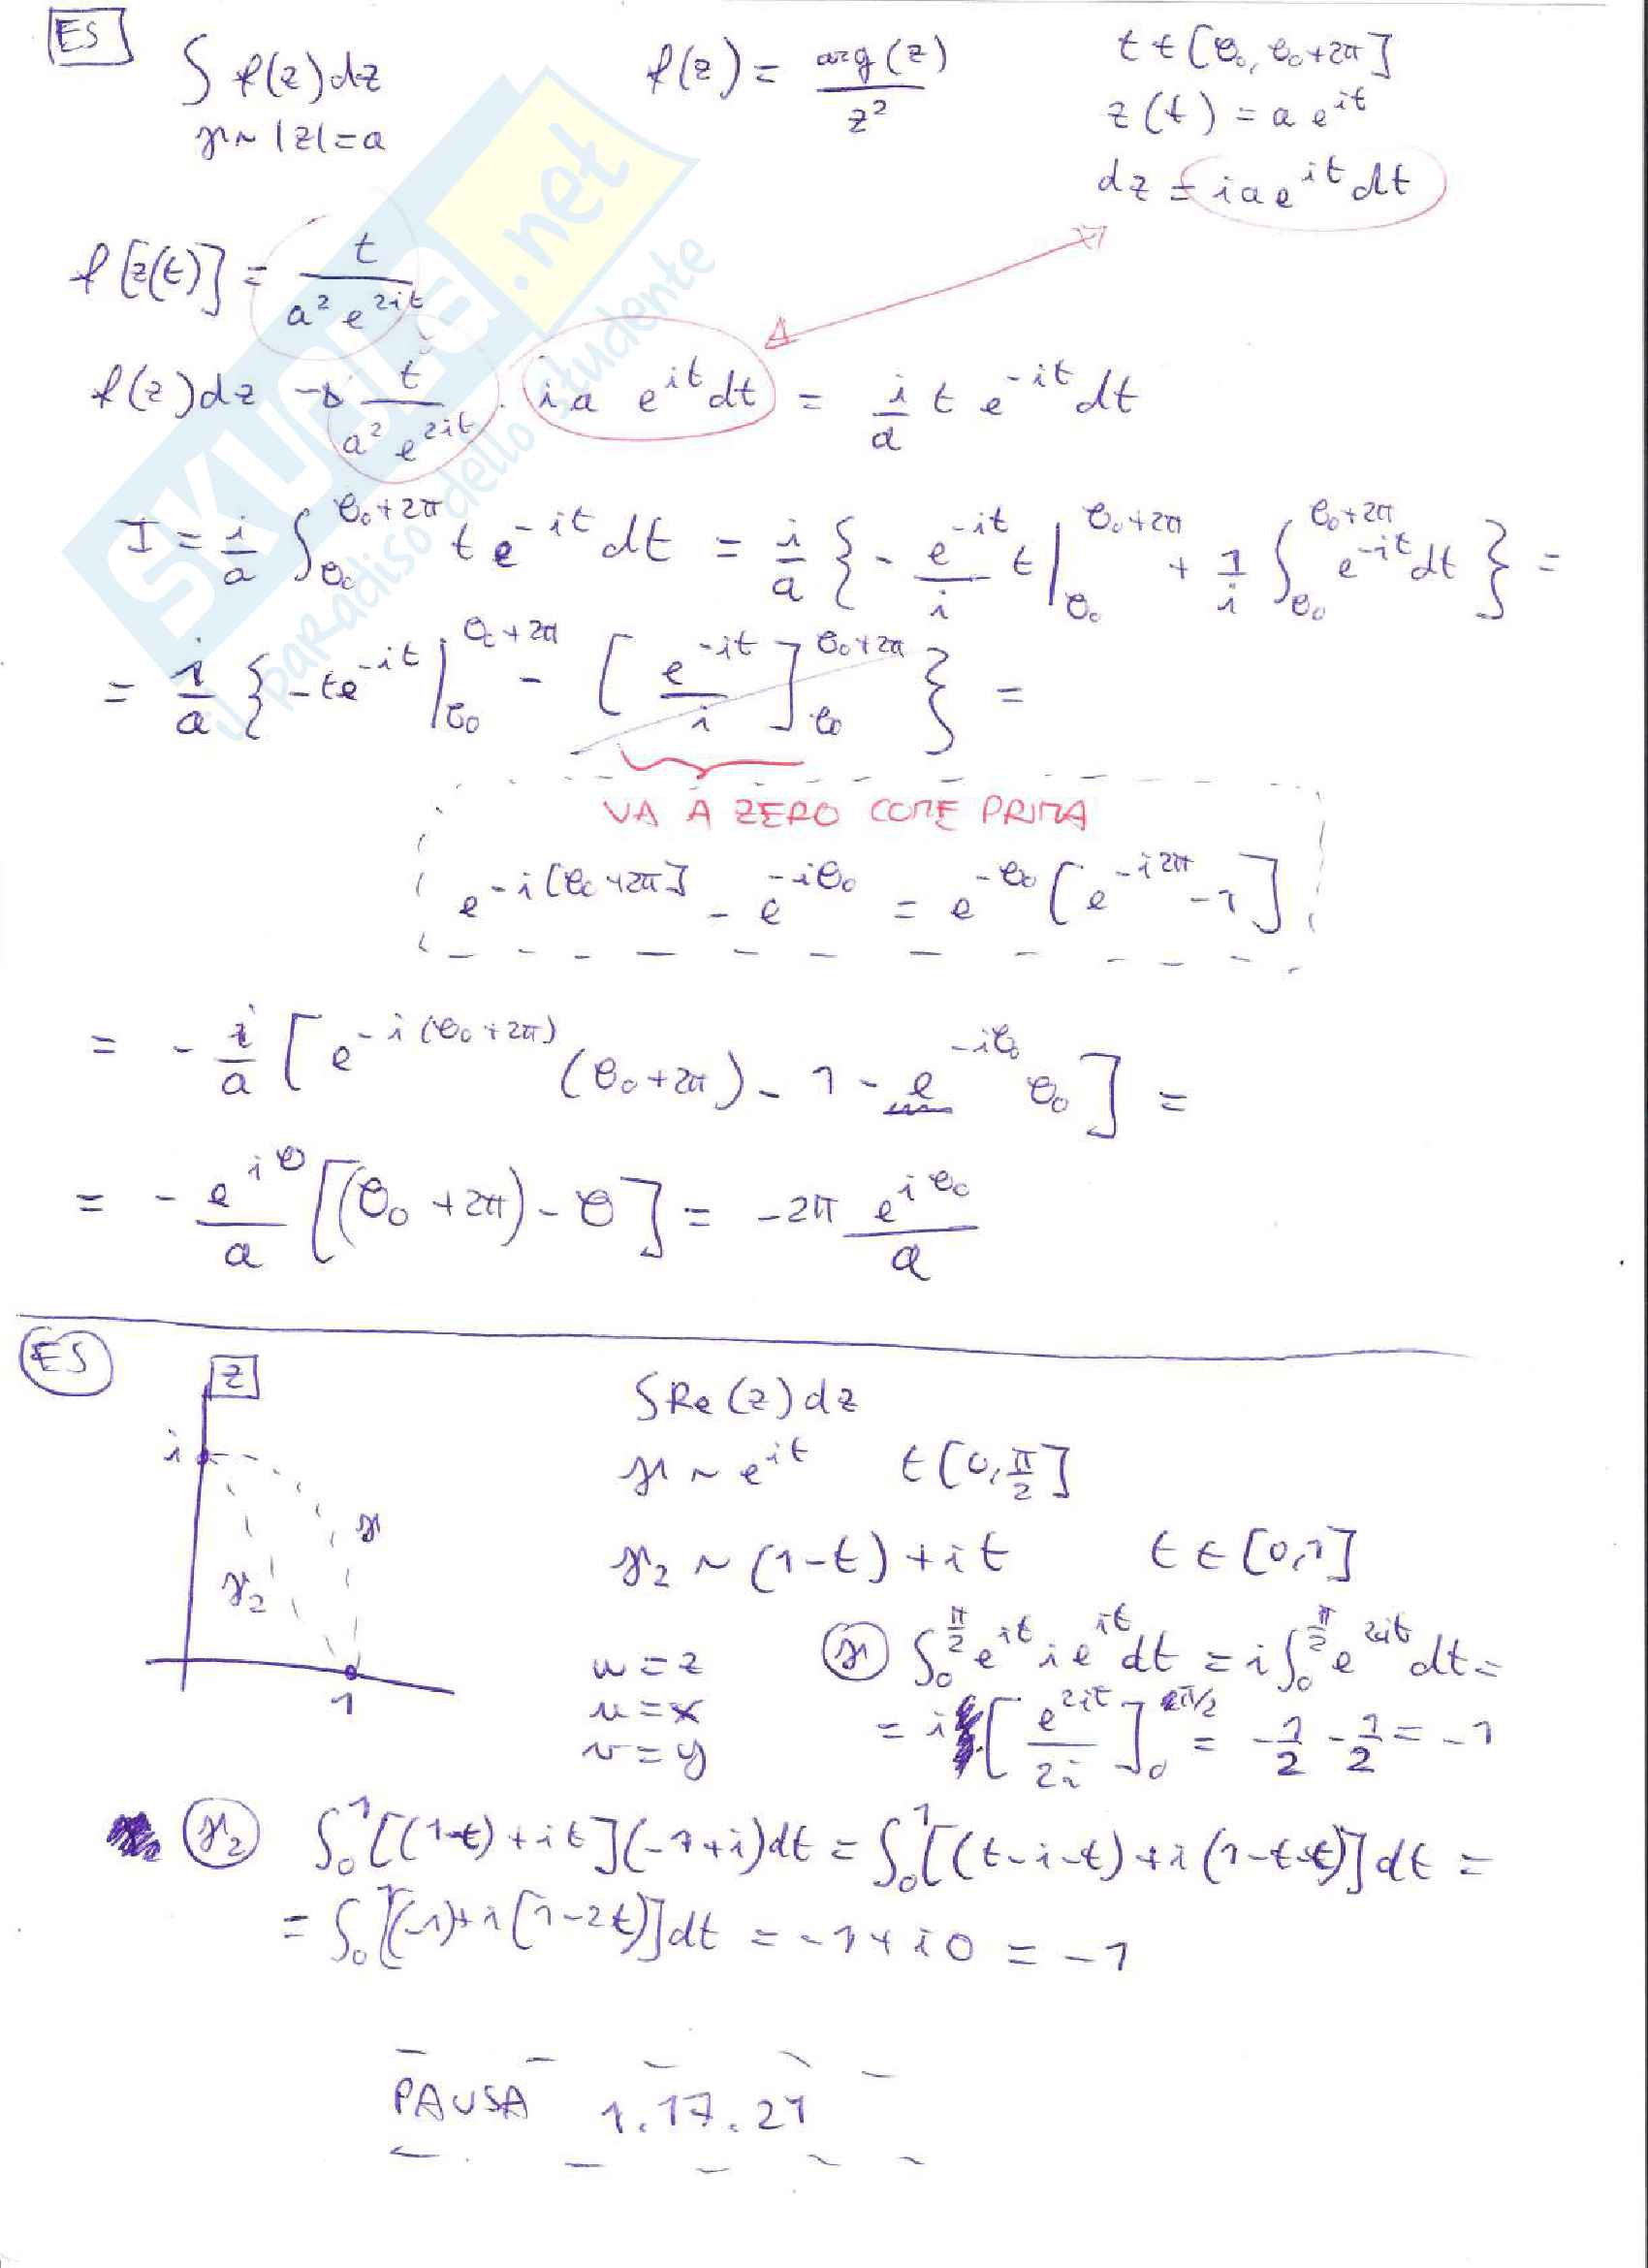 ES
∫ f(z)dz    f(z) = arg(z) / z²    t ∈ [θ₀, θ₀+2π]
γ ~ |z|=a    z(t) = a e^{it}
dz = i a e^{it} dt
f[z(t)] = t / (a² e^{2it})
f(z)dz → t / (a² e^{2it}) · i a e^{it} dt = i/a t e^{-it} dt
I = i/a ∫_{θ₀}^{θ₀+2π} t e^{-it} dt = i/a { - e^{-it}/i t |_{θ₀}^{θ₀+2π} + 1/i ∫_{θ₀}^{θ₀+2π} e^{-it} dt } =
= 1/a { -t e^{-it} |_{θ₀}^{θ₀+2π} - [ e^{-it}/i ]_{θ₀}^{θ₀+2π} } =
VA A ZERO COME PRIMA
e^{-i[θ₀+2π]} - e^{-iθ₀} = e^{-θ₀} [ e^{-i2π} - 1 ]
= - 1/a [ e^{-i(θ₀+2π)} (θ₀+2π) - 1 - e^{-iθ₀} θ₀ ] =
= - e^{iθ}/a [(θ₀+2π) - θ] = -2π e^{iθ₀}/a
ES
z
i
γ
γ₂
1
∫Re(z)dz
γ ~ e^{it}    t[0, π/2]
γ₂ ~ (1-t)+it    t ∈ [0,1]
w = z
u = x
v = y
γ ∫₀^{π/2} e^{it} i e^{it} dt = i ∫₀^{π/2} e^{2it} dt =
= i [ e^{2it}/2i ]₀^{π/2} = -1/2 - 1/2 = -1
γ₂ ∫₀¹ [(1-t)+it](-1+i)dt = ∫₀¹ [(t-1-t)+i(1-t-t)]dt =
= ∫₀¹ [(-1)+i(1-2t)]dt = -1+i0 = -1
PAUSA 1.17.21
SKUOLA.net
il paradiso dello studente